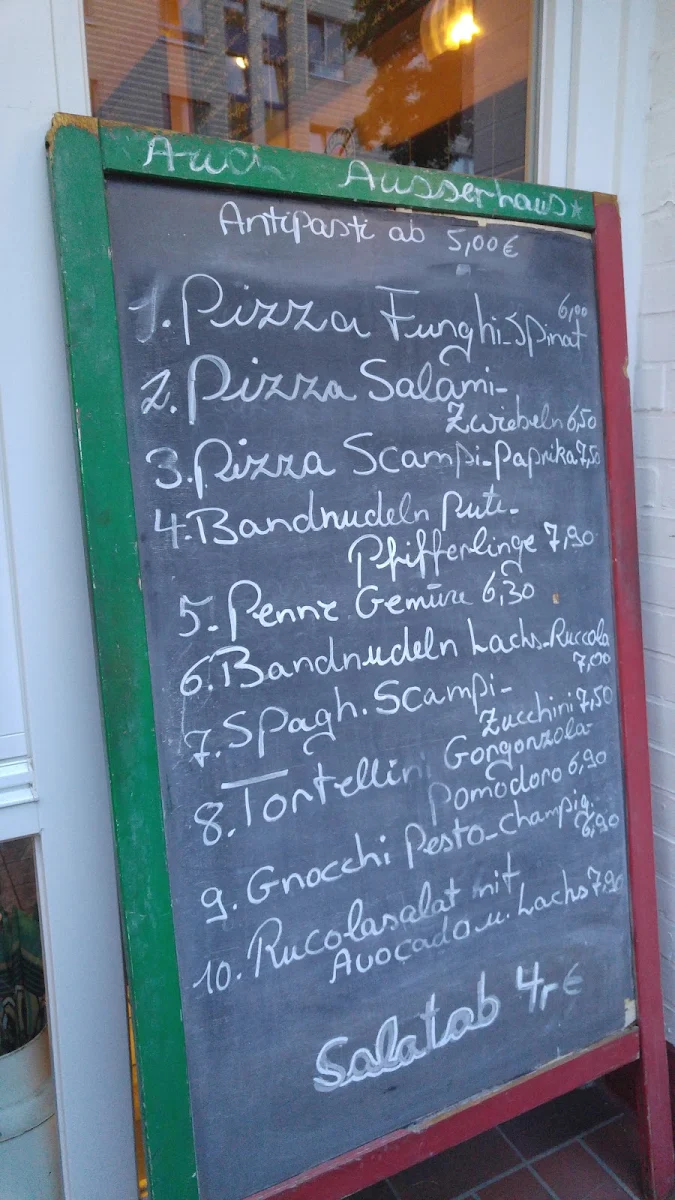 Auch Ausserhaus
Antipasti ab 5,00€
1. Pizza Funghi-Spinat 6,00
2. Pizza Salami-
Zwiebeln 6,50
3. Pizza Scampi-Paprika 7,50
4. Bandnudeln Pute-
Pfifferlinge 7,90
5. Penne Gemüse 6,30
6. Bandnudeln Lachs-Ruccola
7,00
7. Spagh. Scampi-
Zucchini 7,50
8. Tortellini Gorgonzola-
Pomodoro 6,90
9. Gnocchi Pesto-Champig.
6,90
10. Rucolasalat mit
Avocado u. Lachs 7,90
Salat ab 4,- €